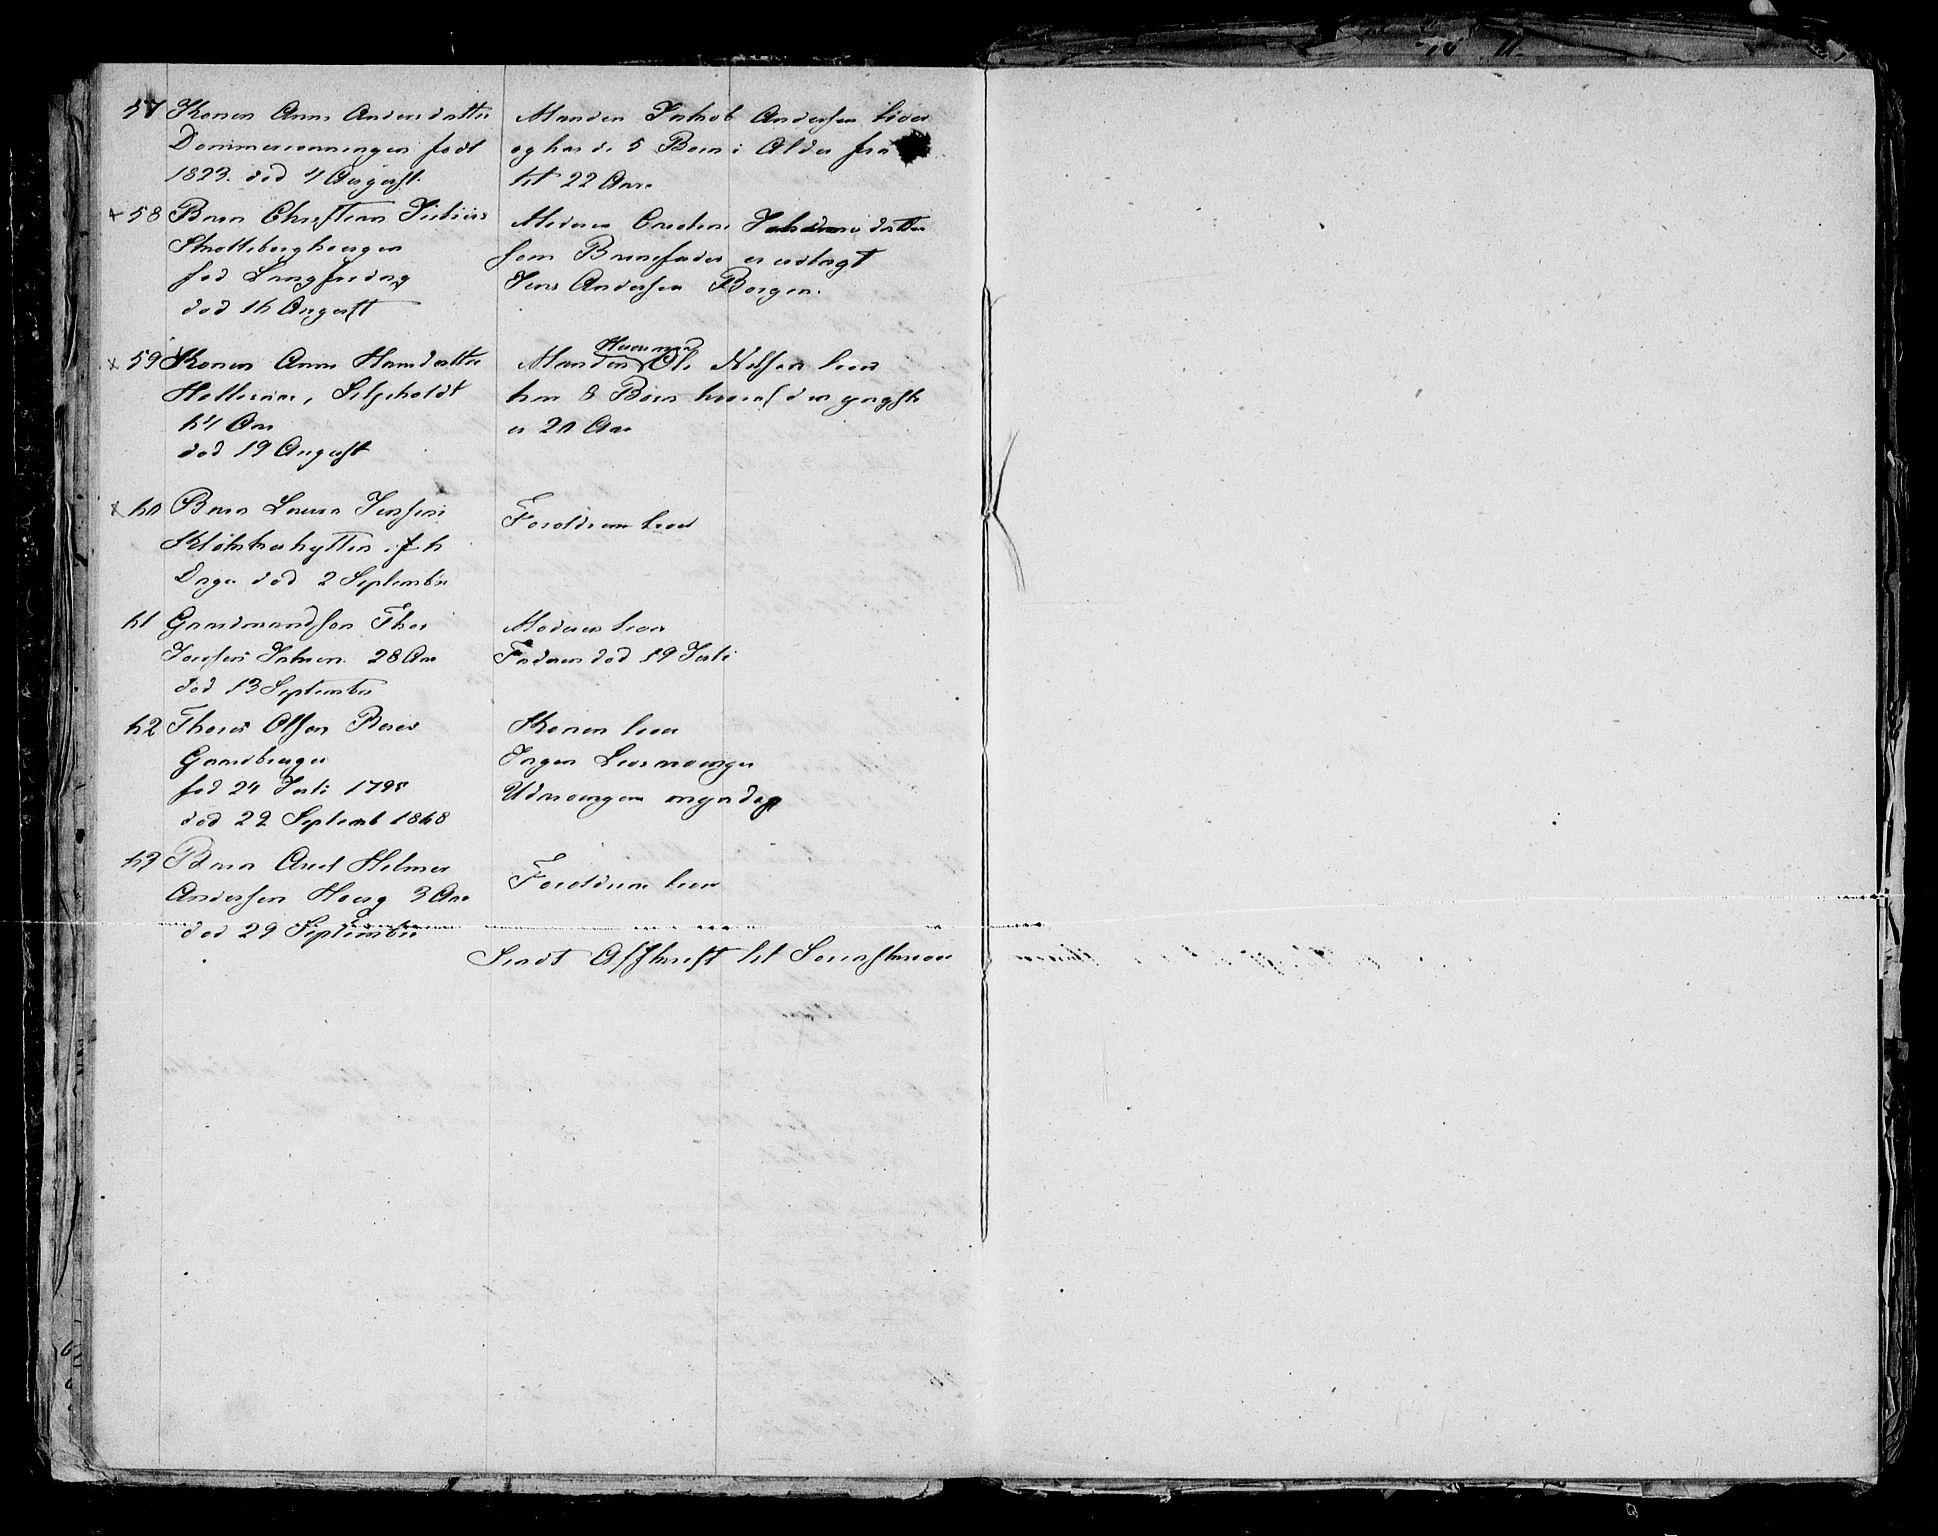 57 Konen Anne Andersdatter
Dommersvingen født
1823. død 4 August.
Manden Jakob Andersen lever
og har de 5 Børn i Alder fra
til 22 Aar
x 58 Barn Christian Julius
Skotteberghougen
fød Langfredag
død 16 August
Moderen Oredine Johannesdatter
som Barnefader er udlagt
Jens Andersen Borgen.
x 59 Konen Anne Hansdatter
Holleraas, Seljeholdt
64 Aar
død 19 August
Huusmand
Manden Ole Nilsen lever
har 8 Børn hvoraf den yngste
er 20 Aar
x 60 Barn Laura Jensine
Klokkerhytten, 6
Dage død 2 September
Forældrene lever
61 Gaardmandsøn Thor
28 Aar
død 13 September
Moderen lever
Faderen død 19 Juli
62 Thores Olsen
Gaardbruger
fød 24 Juli 1795
død 22 Septemb 1868
Konen lever
Ingen Livsarvinger
Udarvingerne myndig
63 Barn Axel Hilmer
Andersen Houg 3 Aar
død 29 September
Forældrene lever
Sendt Afskrift til Sorenskriver